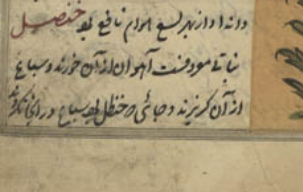 داند از زهر لسع هوام نافع بود خنصیل
نباتی معروفست آهوان از آن خورند و سباع
از آن گریزند و جائی که حنظل بود سباع در آنجا